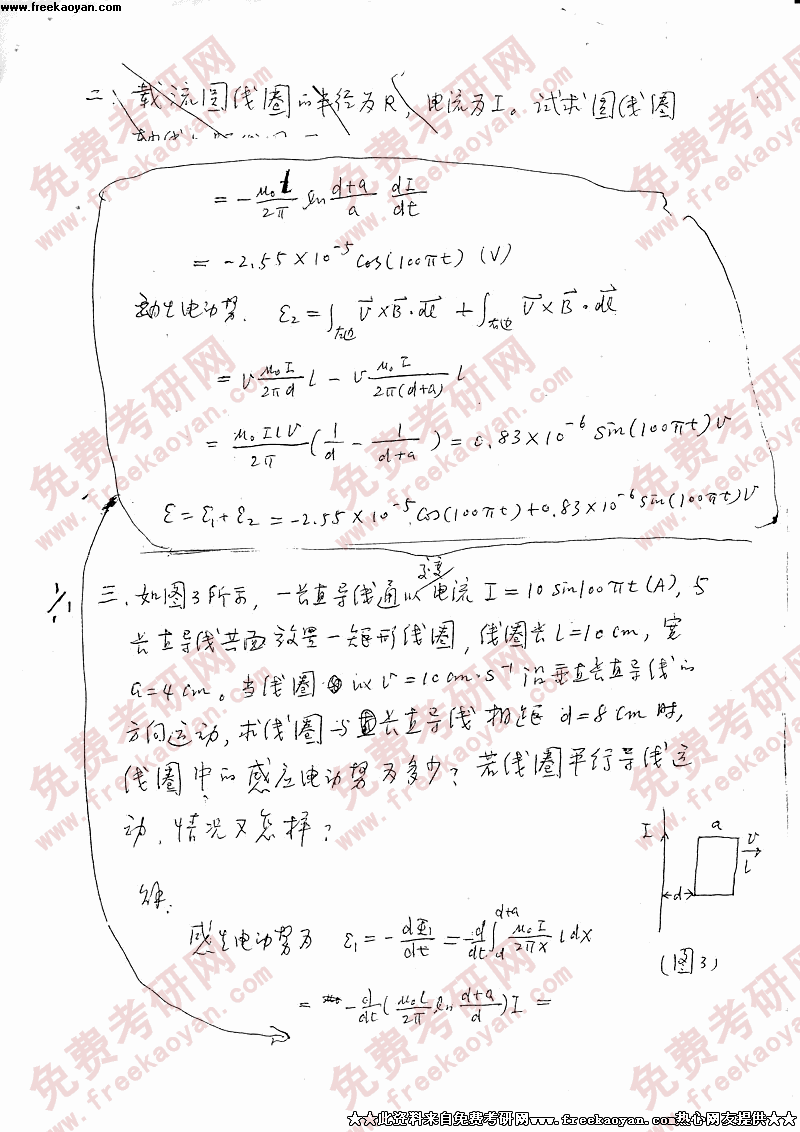 www.freekaoyan.com
二、载流圆线圈的半径为R，电流为I。试求圆线圈
= -μ₀l/2π ln (d+a)/a dI/dt
= -2.55×10⁻⁵cos(100πt) (V)
动生电动势. ε₂ = ∫左边 V⃗×B⃗·dl⃗ + ∫右边 V⃗×B⃗·dl⃗
= v μ₀I/2πd l - v μ₀I/2π(d+a) l
= μ₀Ilv/2π (1/d - 1/d+a) = 0.83×10⁻⁶ sin(100πt) v
ε = ε₁+ε₂ = -2.55×10⁻⁵cos(100πt)+0.83×10⁻⁶sin(100πt)V
三、如图3所示，一长直导线通以交变电流 I=10 sin100πt(A)，与
长直导线共面放置一矩形线圈，线圈长 l=10cm，宽
a=4cm。当线圈以 v=10cm·s⁻¹沿垂直长直导线的
方向运动，求线圈与长直导线相距 d=8cm时，
线圈中的感应电动势为多少？若线圈平行导线运
动，情况又怎样？
I a v l d
(图3)
解:
感生电动势为 ε₁ = -dΦ₁/dt = -d/dt ∫d d+a μ₀I/2πx l dx
= -d/dt (μ₀l/2π ln d+a/d) I =
免费考研网
www.freekaoyan.com
★★此资料来自免费考研网www.freekaoyan.com热心网友提供★★